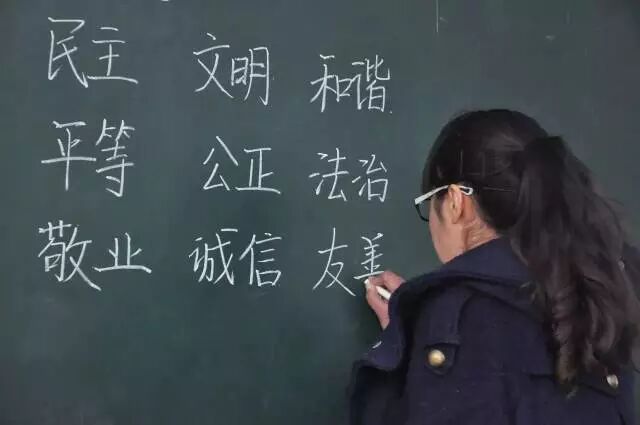 民主 文明 和谐
平等 公正 法治
敬业 诚信 友善